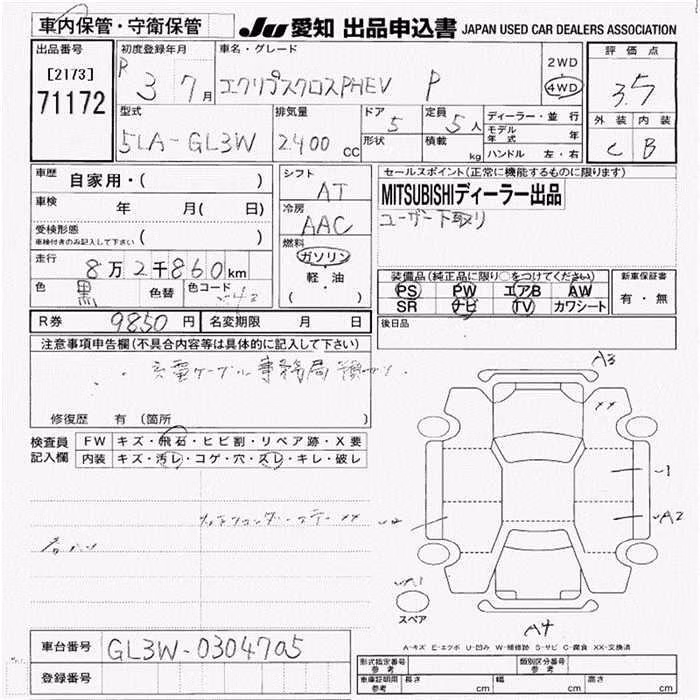 車内保管・守衛保管
JU 愛知 出品申込書 JAPAN USED CAR DEALERS ASSOCIATION
出品番号
[2173]
71172
初度登録年月
R 3 7月
車名・グレード
エクリプスクロスPHEV P
2WD
4WD
評価点
3.5
外装 内装
C B
型式
5LA-GL3W
排気量
2400 cc
ドア
5
形状
定員
5人
積載
kg
ディーラー・並行
モデル年式 年
ハンドル 左・右
車歴 自家用・( )
車検 年 月( 日)
受検形態
車検付きのみ記入して下さい ( )
走行 8万2千860km
色 黒 色替 色コード X42
シフト
AT
冷房
AAC
燃料
ガソリン
軽・油
( )
セールスポイント(正常に機能するものに限ります)
MITSUBISHIディーラー出品
ユーザー下取り
装備品(純正品に限り○をつけてください)
PS PW エアB AW
SR ナビ TV カワシート
新車保証書
有・無
後日品
R券 9850円 名変期限 月 日
注意事項申告欄(不具合内容等は具体的に記入して下さい)
充電ケーブル事務局預かり.
修復歴 有(箇所 )
検査員記入欄
FW キズ・飛石・ヒビ割・リペア跡・X要
内装 キズ・汚レ・コゲ・穴・スレ・キレ・破レ
A3
XX
A2
スペア
A4
A-キズ E-エクボ U-凹み W-補修跡 S-サビ C-腐食 XX-交換済
車台番号 GL3W-0304705
登録番号
形式指定番号 参考
類別区分番号 参考
車庫証明用 参考 長さ cm 幅 cm 高さ cm